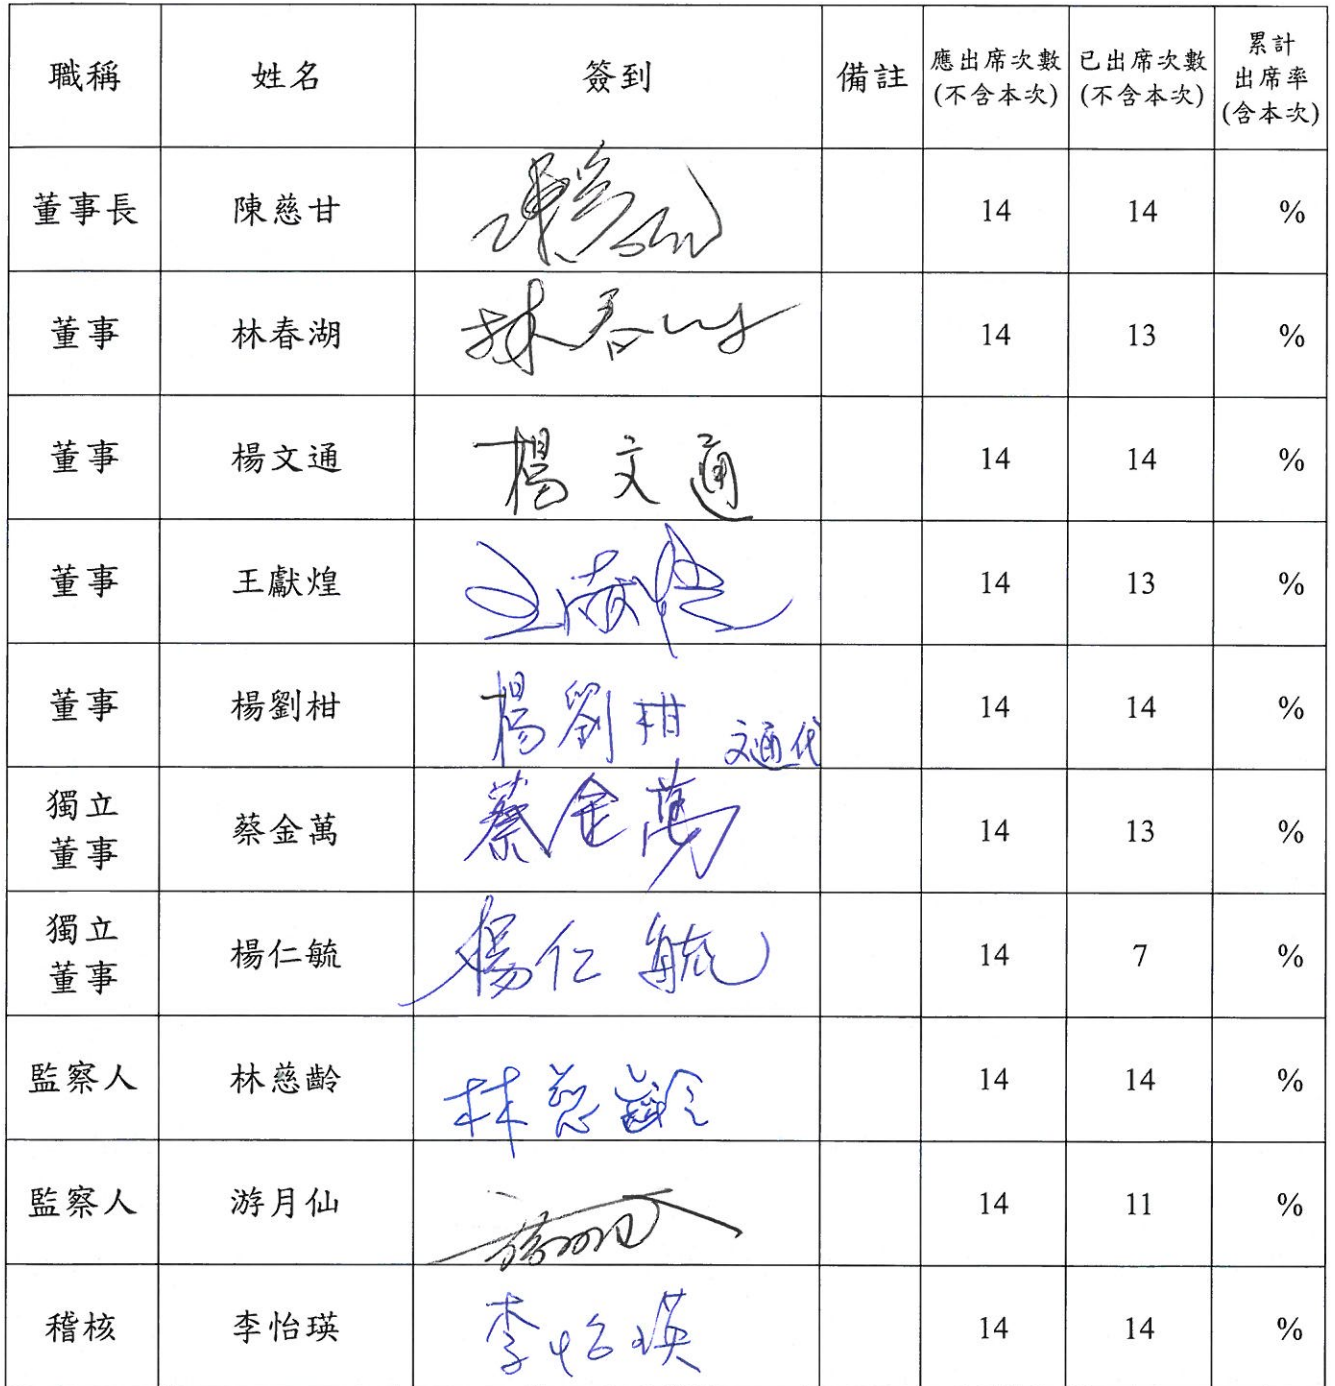 職稱 姓名 簽到 備註 應出席次數 已出席次數 累計
(不含本次) (不含本次) 出席率
(含本次)
董事長 陳慈甘 14 14 %
董事 林春湖 林春 14 13 %
董事 楊文通 楊文通 14 14 %
董事 王獻煌 14 13 %
董事 楊劉柑 楊劉柑 文通代 14 14 %
獨立
董事 蔡金萬 蔡金萬 14 13 %
獨立
董事 楊仁毓 楊仁毓 14 7 %
監察人 林慈齡 林慈齡 14 14 %
監察人 游月仙 14 11 %
稽核 李怡瑛 李怡瑛 14 14 %